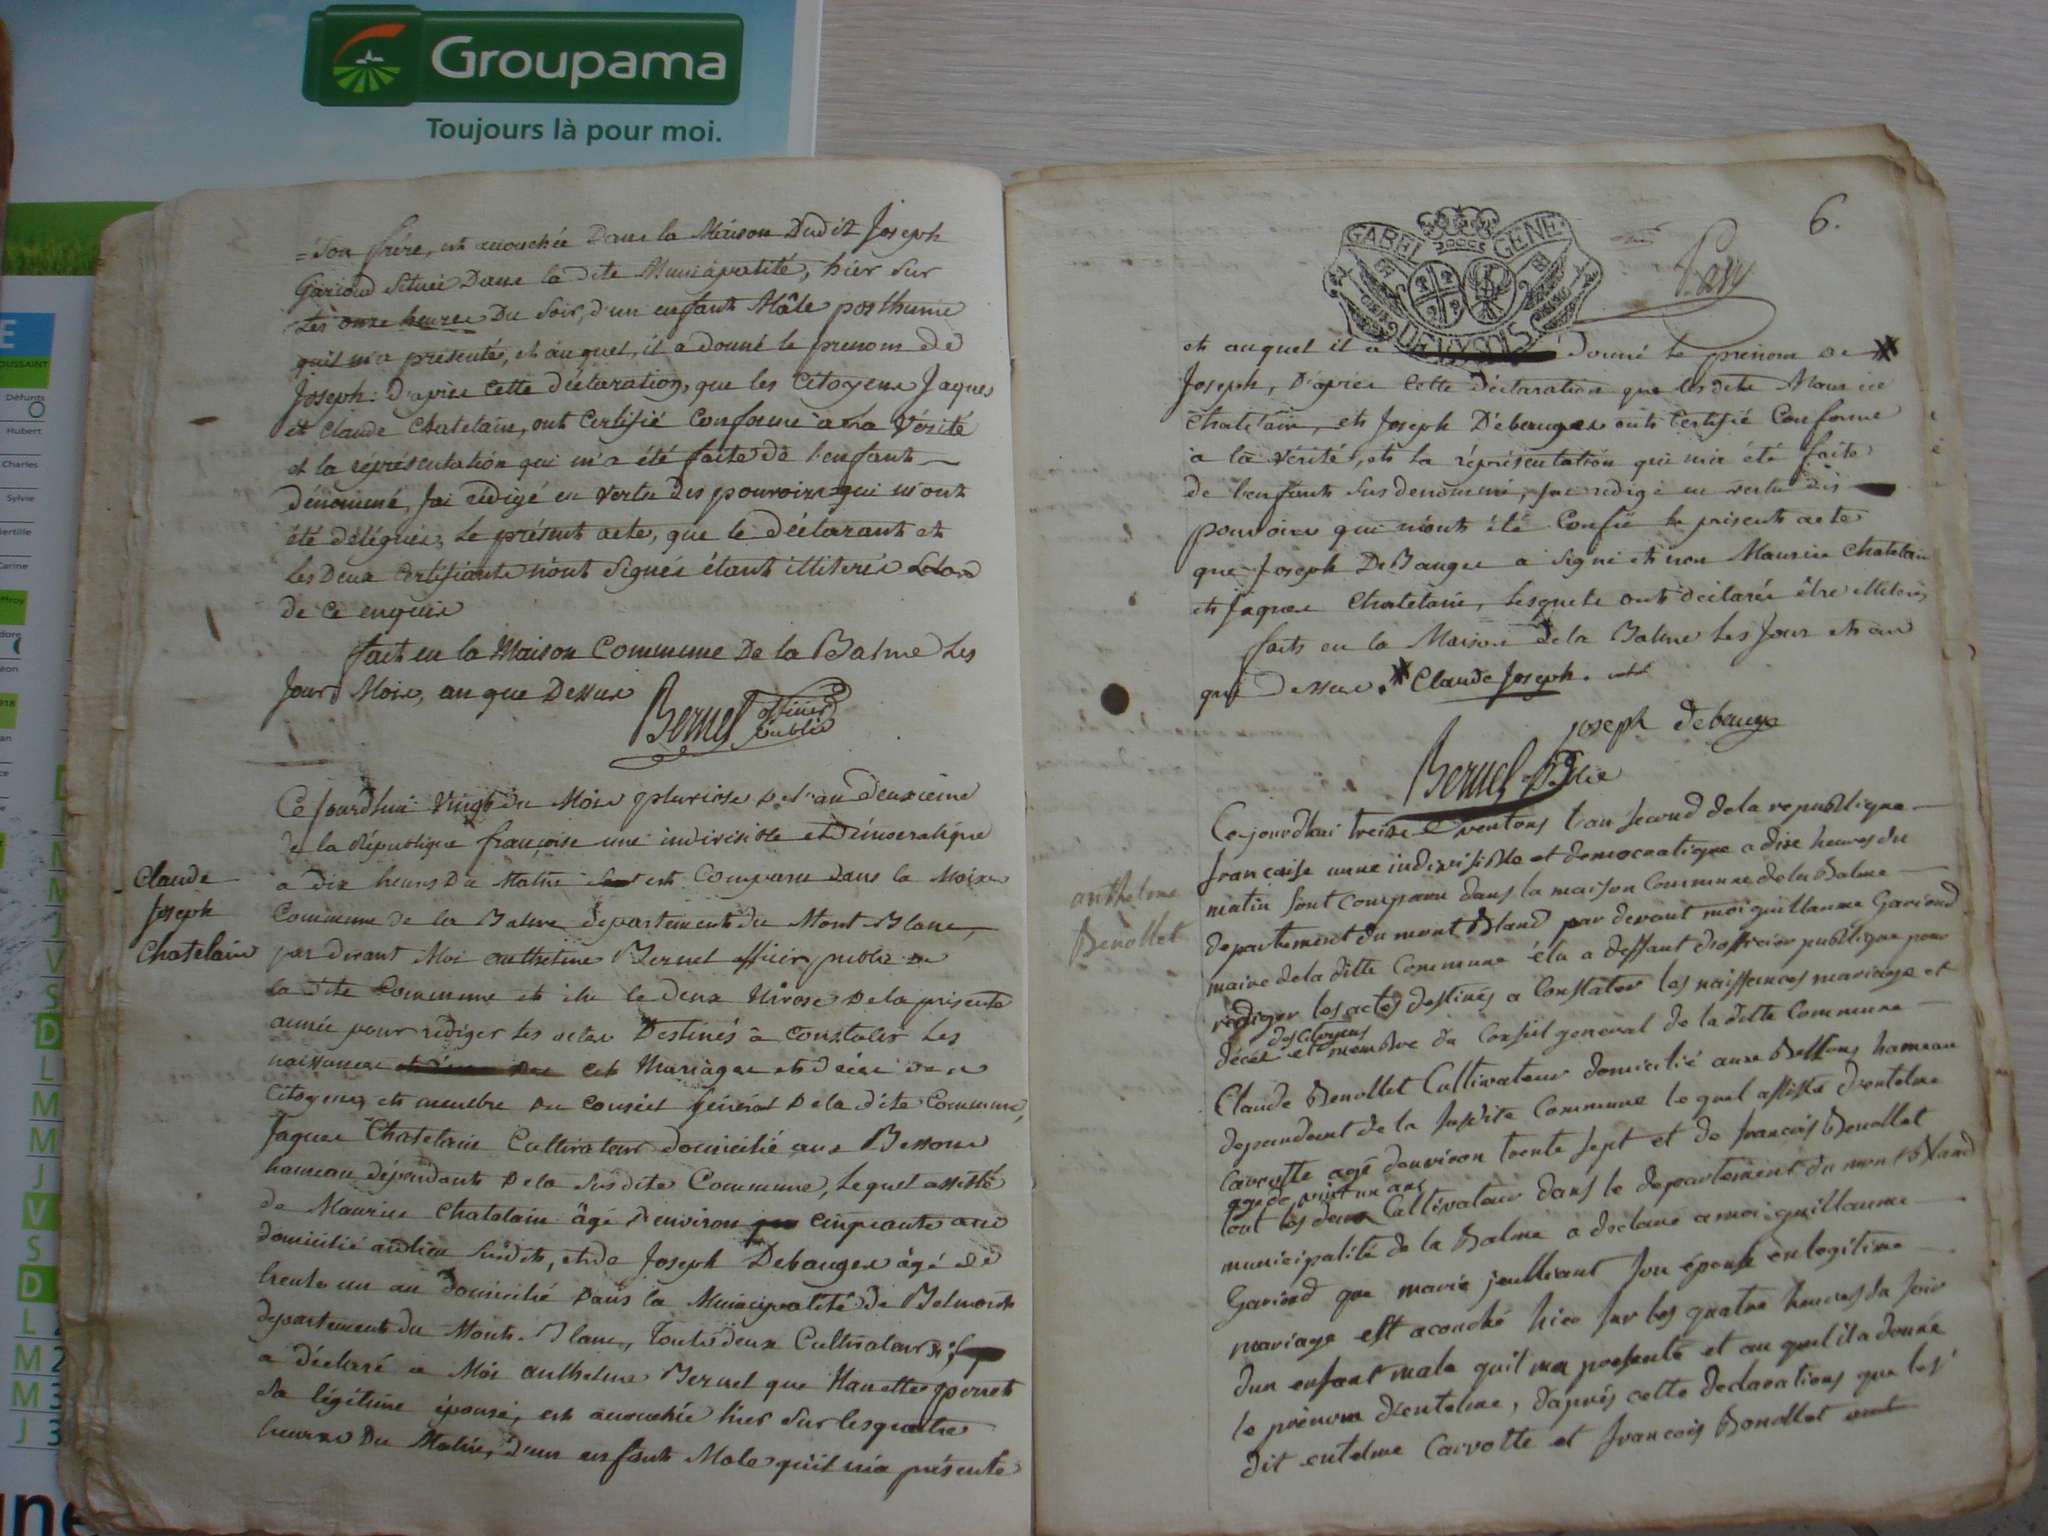 Groupama
Toujours là pour moi.
E
OUSSAINT
Défunts
Hubert
Charles
Sylvie
= Son frère, est acouchée Dans la Maison Dudit Joseph
Gariond Située Dans la dite Municipalité, hier sur
Les onze heures Du Soir, d'un enfant Mâle posthume
quil m'a présenté, et auquel, il a donné le prenom de
Joseph. D'après cette déclaration, que les Citoyens Jaques
et Claude Chatelain, ont Certifié Conforme a la Vérité
et la réprésentation qui m'a été faite de l'enfant
dénommé, J'ai rédigé en vertu des pouvoirs qui m'ont
été délégués, Le présent acte, que le déclarant et
Les Deux Certifiants n'ont Signés étant illiterés
de ce enquis
fait en la Maison Commune De la Balme Les
Jour, Mois, an que Dessus
Bernel officier
public
Claude
Joseph
Chatelain
Ce Jourdhui vingt du Mois pluviose de l'an deuxieme
de la République françoise une indivisible et démocratique
a dix heures Du Matin est Comparu Dans la Maison
Commune de la Balme departement du Mont Blanc,
par devant Moi anthelme Bernel officier public de
la dite Commune et élu le deux Nivose De la présente
année pour rédiger les actes Destinés à constater Les
naissances et Mariages et décès des
Citoyens, et membre du Conseil général De la dite Commune,
Jaques Chatelain Cultivateur domicilié aux Bessons
hameau dépendant De la Susdite Commune, Lequel assisté
de Maurice Chatelain âgé d'environ cinquante ans
domicilié au lieu Susdit, et de Joseph Debauges âgé de
trente un an domicilié dans la Municipalité de Belmont
departement du Mont-Blanc, Tout deux Cultivateurs
a déclaré a Moi anthelme Bernel que Nanette perret
Sa légitime épouse, est acouchée hier Sur les quatre
heures Du Matin, d'un enfant Male quil m'a présenté
6.
GABEL GENE.
et auquel il a donné le prénom de *
Joseph, D'après Cette Déclaration que les dits Maurice
Chatelain, et Joseph Débauges ont Certifié Conforme
a la Vérité, et la réprésentation qui m'a été faite
de l'enfant Susdenommé, J'ai redigé en vertu des
pouvoirs qui m'ont été Confié le présent acte
que Joseph DeBauges a Signé et non Maurice Chatelain
et Jaques Chatelain, Lesquels ont déclarée être illiterés
fait en la Maison de la Balme Les Jour et an
que Dessus. * Claude Joseph.
joseph debauge
Bernel
anthelme
Benollet
Ce jourdhui treize ventons l'an second de la republique
francaise unne indivisible et democratique a dixe heures du
matin sont comparu dans la maison Commune de la Balme
departement du mont Bland par devant moi guillaume Gariond
maire de la ditte Commune élu a deffant d'officier publique pour
rediger les actes destinés a Constater les naissances mariage et
des citoyens
décés et membre du Conseil general de la ditte Commune
Claude Benollet Cultivateur domicilié aux Bessons hameau
dependant de la susdite Commune le quel assisté d'entelme
Carrotte agé d'environ trente sept et de francois Benollet
agé de vint un ans
tout les deux Cultivateur dans le departement du mont Bland
municipalité de la Balme a declaré a moi guillaume
Gariond que marie son épouse en legitime
mariage est acouché hier sur les quatre heures du soir
dun enfant male quil ma presenté et au quel il a donné
le prénom d'entelme, d'après cette declarations que les
dit entelme Carrotte et francois Benollet ont